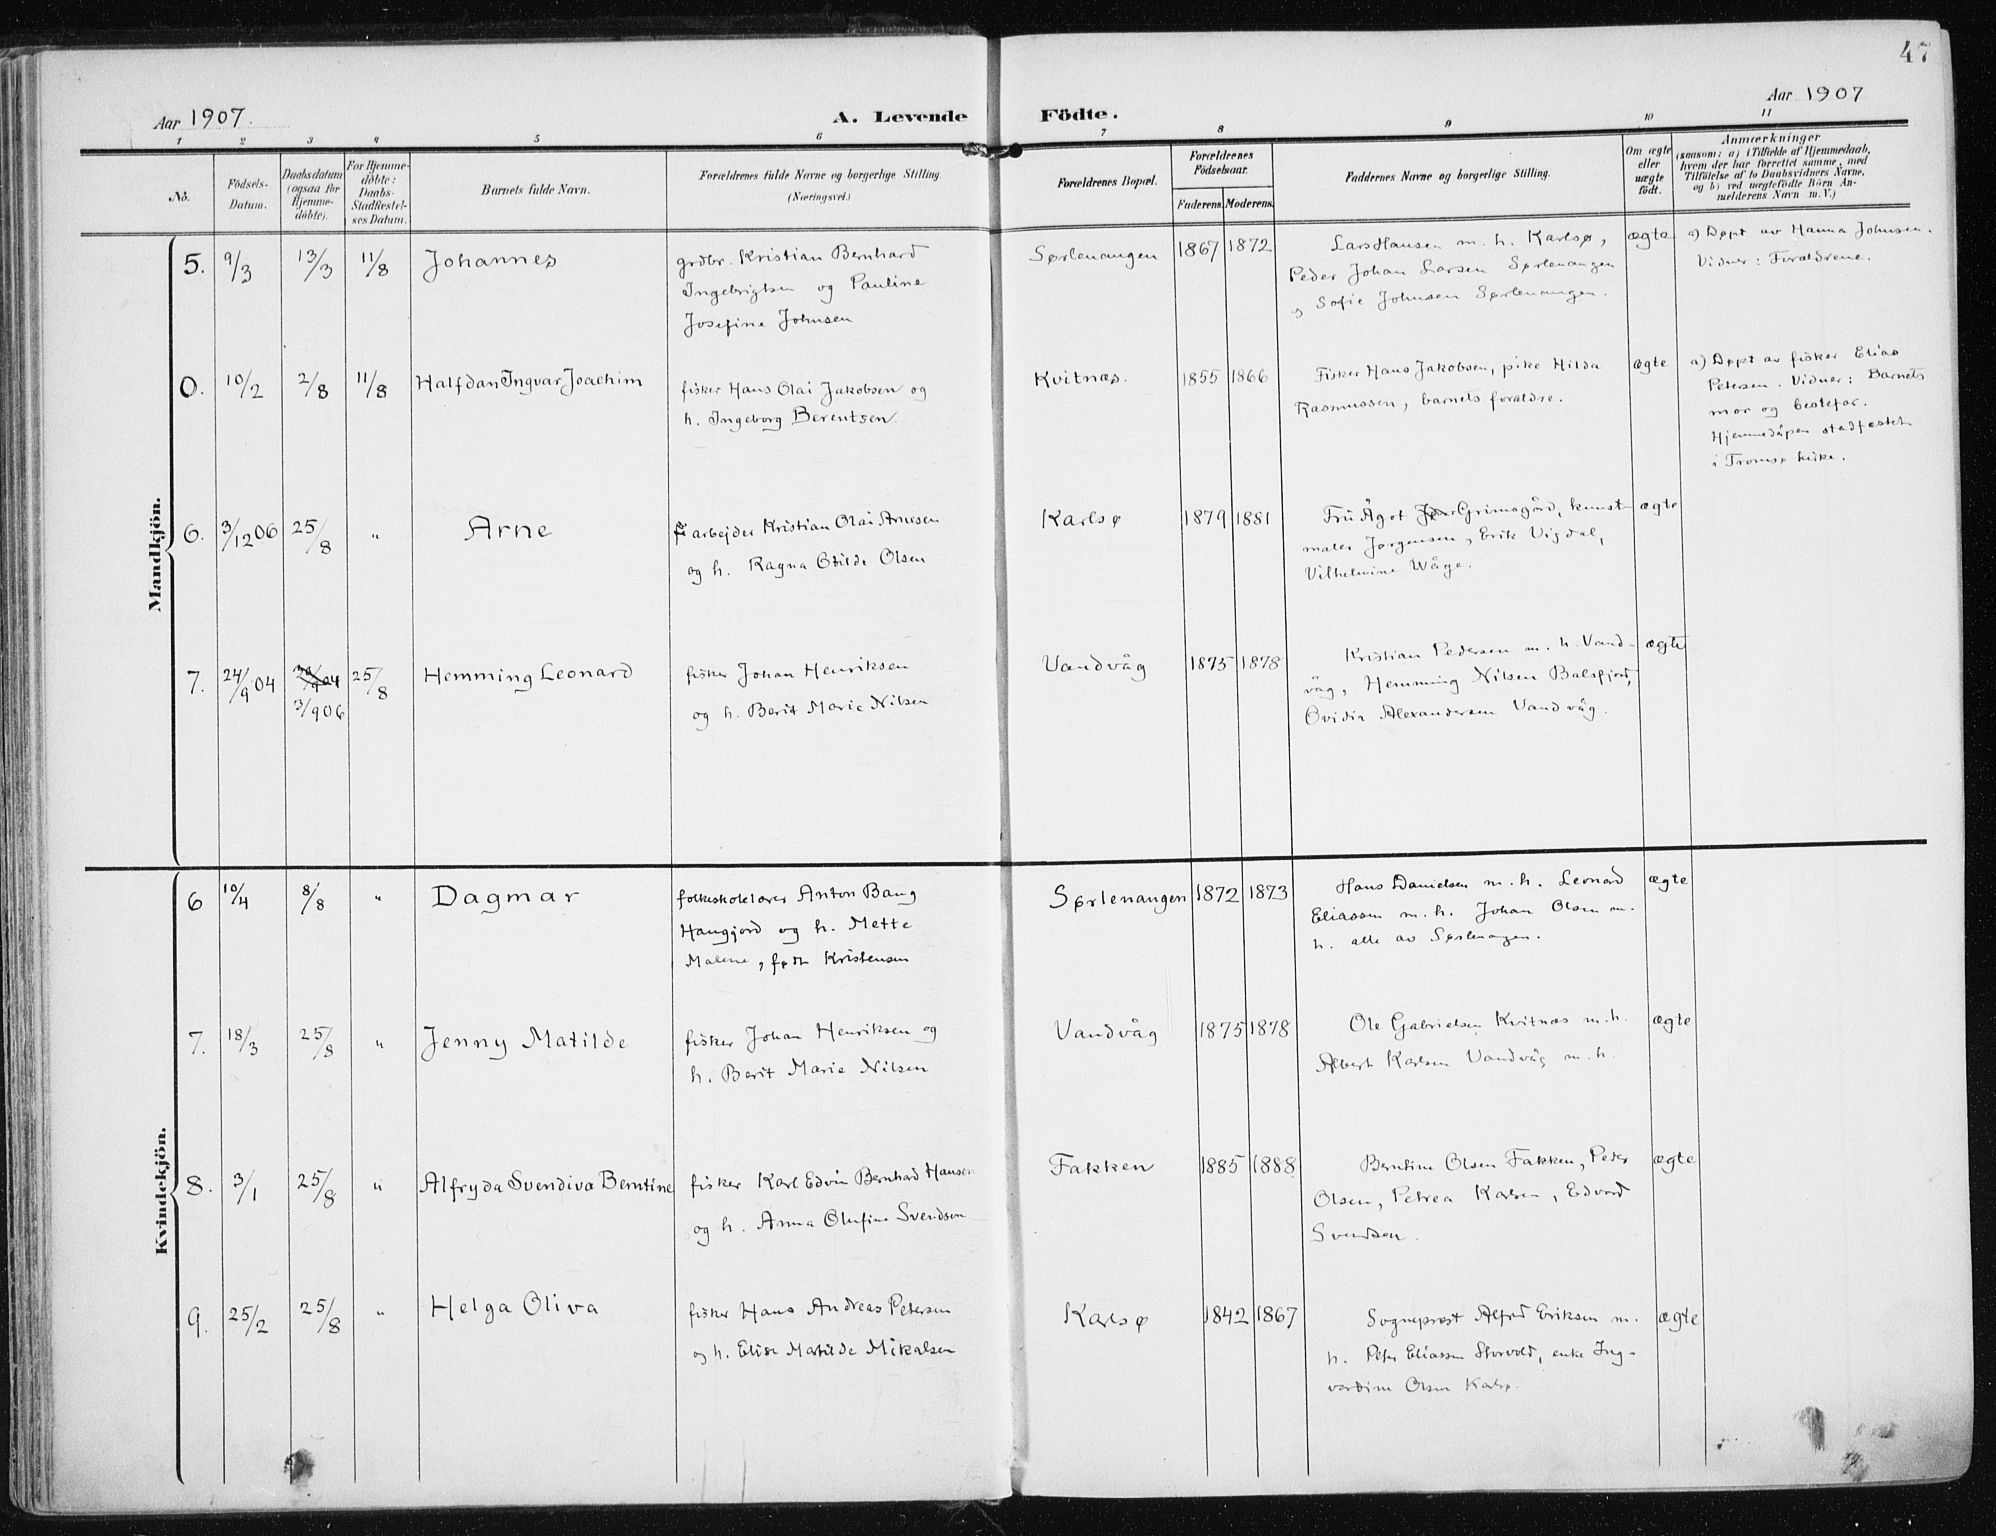 47
Aar 1907.
A. Levende Födte.
Aar 1907
1 2 3 4 5 6 7 8 9 10 11
No.
Födsels-
Datum.
Daabsdatum
(ogsaa for
Hjemme-
döbte).
For Hjemme-
döbte:
Daabs-
Stadfæstel-
ses Datum.
Barnets fulde Navn.
Forældrenes fulde Navne og borgerlige Stilling
(Næringsvei.)
Forældrenes Bopæl.
Forældrenes
Födselsaar.
Faderens. Moderens.
Faddernes Navne og borgerlige Stilling.
Om ægte
eller
uægte
födt.
Anmærkninger
(saasom: a) i Tilfælde af Hjemmedaab,
hvem der har forrettet samme, med
Tilföielse af to Daabsvidners Navne,
og b) ved uægtefödte Börn An-
melderens Navn m. V.)
Mandkjön.
5. 9/3 13/3 11/8 Johannes
grdbr. Kristian Bernhard
Ingebrigtsen og Pauline
Josefine Johnsen
Sørlenangen 1867 1872
Lars Hansen m. h. Karlsø,
Peder Johan Larsen Sørlenangen
og Sofie Johnsen Sørlenangen.
ægte
a) Døpt av Hanna Johnsen.
Vidner: Forældrene.
0. 10/2 2/8 11/8 Halfdan Ingvar Joachim
fisker Hans Olai Jakobsen og
h. Ingeborg Berentsen.
Kvitnæs. 1855 1866
Fisker Hans Jakobsen, pike Hilda
Rasmussen, barnets forældre.
ægte
a) Døpt av fisker Elias
Petersen. Vidner: Barnets
mor og bestefar.
Hjemmedåpen stadfæstet
i Tromsø kirke.
6. 3/12 06 25/8 " Arne
arbejder Kristian Olai Arnesen
og h. Ragna Otilde Olsen
Karlsø 1879 1881
Fru Ågot Grimsgård, kunst-
maler Jørgensen, Erik Vigdal,
Vilhelmine Wåge.
ægte
7. 24/9 04 3/9 06 25/8 Hemming Leonard
fisker Johan Henriksen
og h. Berit Marie Nilsen
Vandvåg 1875 1878
Kristian Pedersen m. h. Vand-
våg, Hemming Nilsen Balsfjord,
Ovidia Alexandersen Vandvåg.
ægte
Kvindekjön.
6 10/4 8/8 " Dagmar
folkeskolelærer Anton Bang
Haugfjord og h. Mette
Malene, født Kristensen
Sørlenangen 1872 1873
Hans Danielsen m. h. Leonard
Eliassen m. h. Johan Olsen m.
h. alle av Sørlenangen.
ægte
7. 18/3 25/8 " Jenny Matilde
fisker Johan Henriksen og
h. Berit Marie Nilsen
Vandvåg 1875 1878
Ole Gabrielsen Kvitnæs m. h.
Albert Karlsen Vandvåg m. h.
ægte
8. 3/1 25/8 " Alfryda Svendiva Berntine
fisker Karl Edvin Bernhard Hansen
og h. Anna Olufine Svendsen
Fakken 1885 1888
Berntine Olsen Fakken, Peder
Olsen, Petrea Karlsen, Edvard
Svendsen.
ægte
9. 25/2 25/8 " Helga Oliva
fisker Hans Andreas Petersen
og h. Elise Matilde Mikalsen
Karlsø 1842 1867
Sogneprest Alfred Eriksen m.
h. Peter Eliassen Storvold, enke Ing-
vardine Olsen Karlsø.
ægte